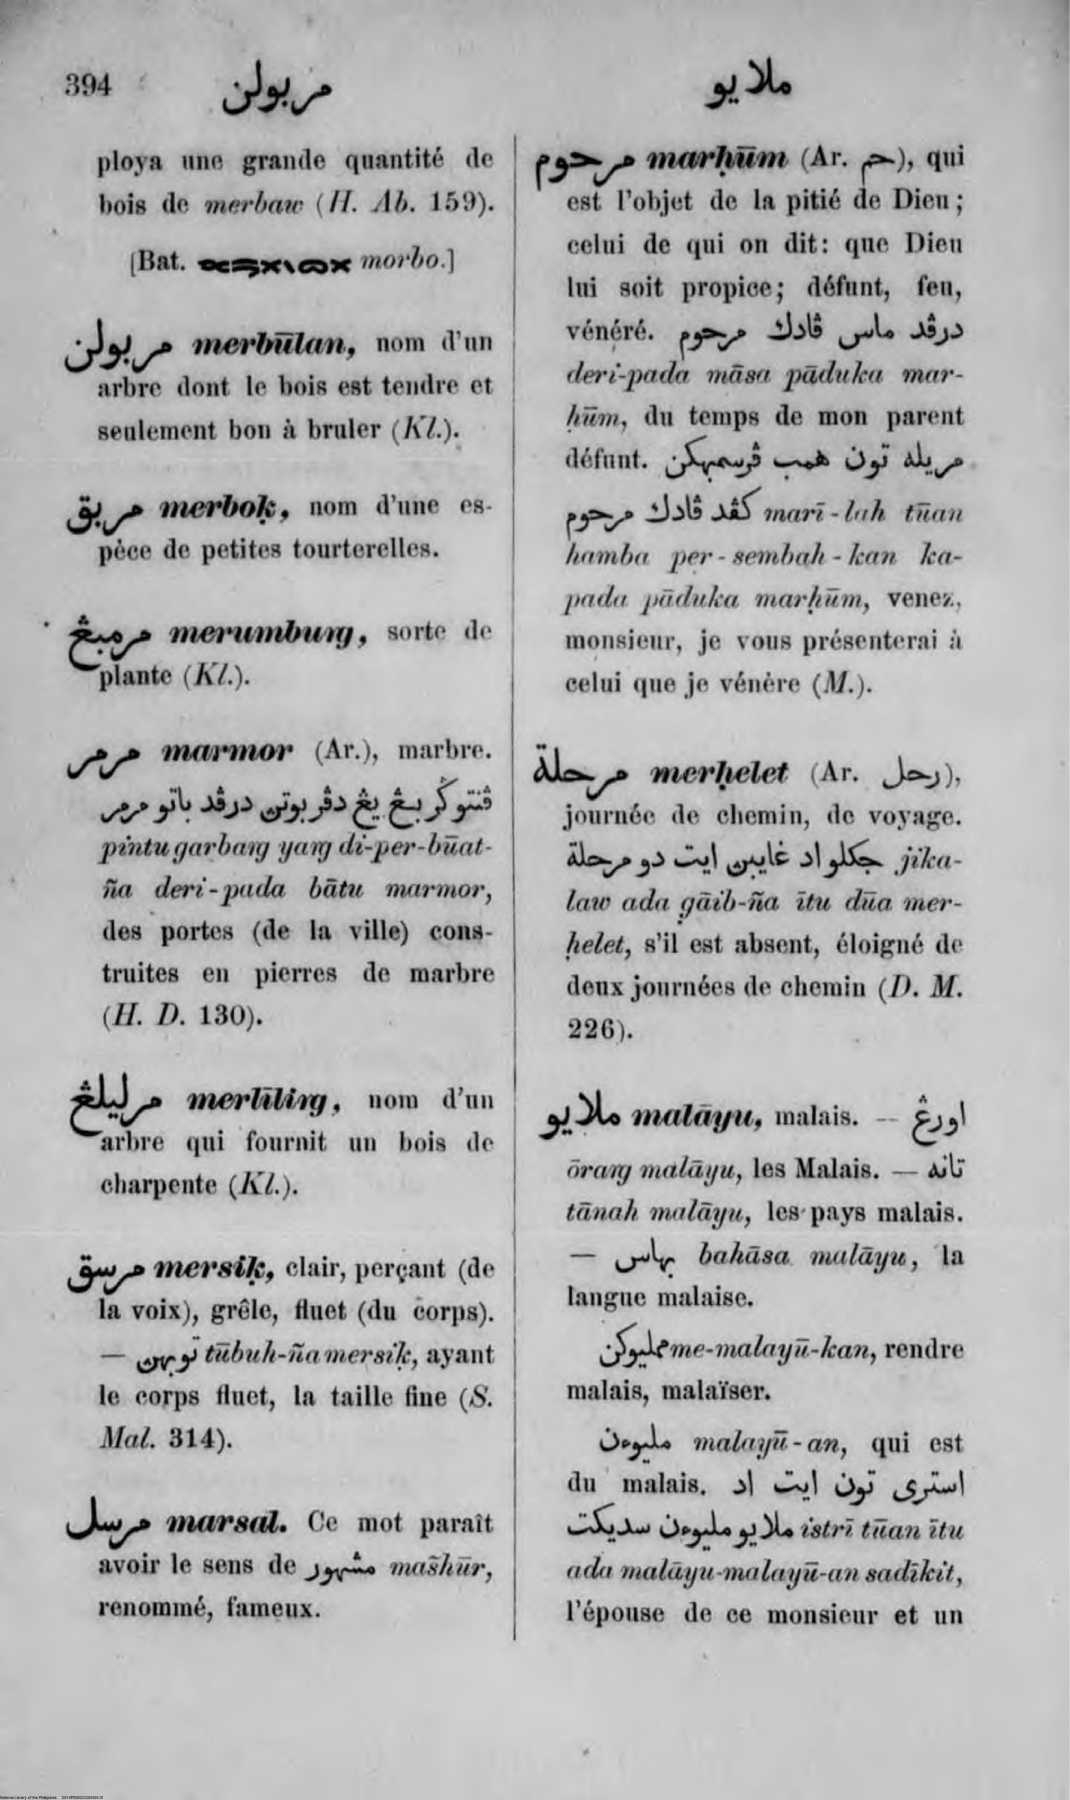 394
مربولن
ملايو
ploya une grande quantité de
bois de merbaw (H. Ab. 159).
[Bat. morbo.]
مربولن merbūlan, nom d'un
arbre dont le bois est tendre et
seulement bon à bruler (Kl.).
مربق merboḳ, nom d'une es-
pèce de petites tourterelles.
مرمبڠ merumburg, sorte de
plante (Kl.).
مرمر marmor (Ar.), marbre.
ڤنتو ݢربڠ يڠ دڤربوتن درڤد باتو مرمر
pintu garbarg yarg di-per-būat-
ña deri-pada bātu marmor,
des portes (de la ville) cons-
truites en pierres de marbre
(H. D. 130).
مرليلڠ merlīlirg, nom d'un
arbre qui fournit un bois de
charpente (Kl.).
مرسق mersiḳ, clair, perçant (de
la voix), grêle, fluet (du corps).
— توبهن tūbuh-ña mersiḳ, ayant
le corps fluet, la taille fine (S.
Mal. 314).
مرسل marsal. Ce mot paraît
avoir le sens de مشهور mašhūr,
renommé, fameux.
مرحوم marḥūm (Ar. رحم), qui
est l'objet de la pitié de Dieu;
celui de qui on dit: que Dieu
lui soit propice; défunt, feu,
vénéré. درڤد ماس ڤادك مرحوم
deri-pada māsa pāduka mar-
ḥūm, du temps de mon parent
défunt. مريله تون همب ڤرسمبهكن
كڤد ڤادك مرحوم marī-lah tūan
hamba per-sembah-kan ka-
pada pāduka marḥūm, venez,
monsieur, je vous présenterai à
celui que je vénère (M.).
مرحلة merḥelet (Ar. رحل),
journée de chemin, de voyage.
جكلو اد غايبن ايت دو مرحلة jika-
law ada gāib-ña ītu dūa mer-
ḥelet, s'il est absent, éloigné de
deux journées de chemin (D. M.
226).
ملايو malāyu, malais. — اورڠ
ōrarg malāyu, les Malais. — تانه
tānah malāyu, les pays malais.
— بهاس bahāsa malāyu, la
langue malaise.
ممليوكن me-malayū-kan, rendre
malais, malaïser.
مليوءن malayū-an, qui est
du malais. استري تون ايت اد
ملايو مليوءن سديكت istrī tūan ītu
ada malāyu-malayū-an sadīkit,
l'épouse de ce monsieur et un